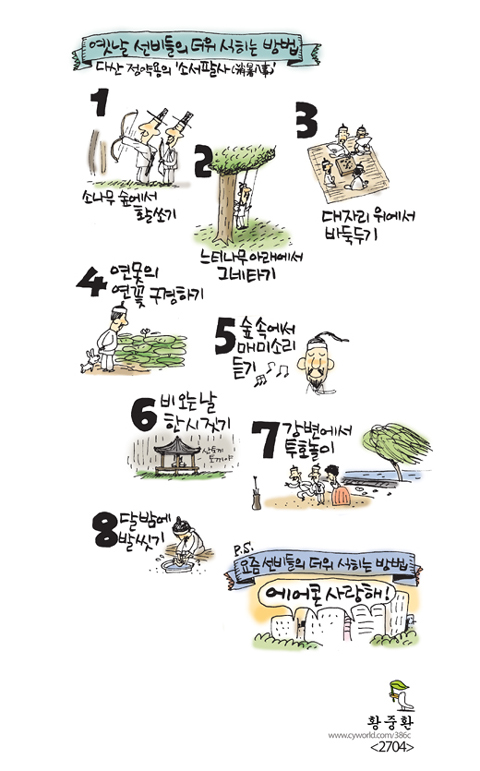 옛날 선비들의 더위 식히는 방법
다산 정약용의 '소서팔사(消暑八事)'
1
소나무 숲에서
활쏘기
2
느티나무 아래에서
그네타기
3
대자리 위에서
바둑두기
4 연못의
연꽃 구경하기
5 숲속에서
매미소리
듣기
6 비오는날
한시짓기
7 강변에서
투호놀이
8 달밤에
발씻기
P.S.
요즘 선비들의 더위 식히는 방법
에어콘 사랑해!
황중환
www.cyworld.com/386c
<2704>